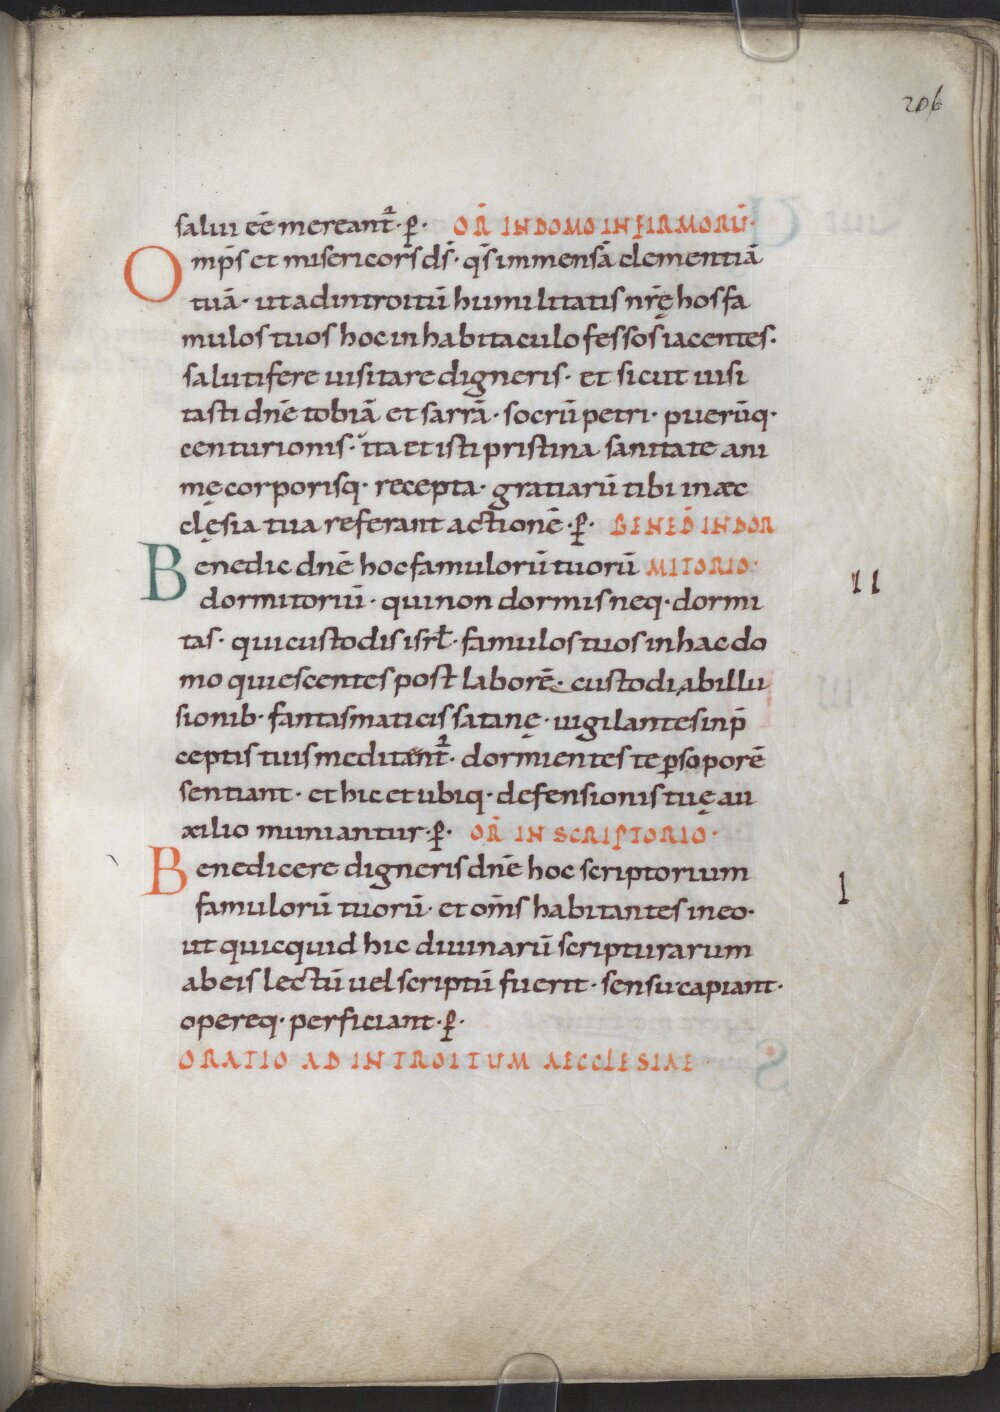 206
salui eē mereant᷑· ꝑ· OR̄ IN DOMO INFIRMORŪ·
Omp̄s et misericors d̄s· q̄s immensā clementiā
tuā· ut ad introitū humilitatis nr̄ę hos fa
mulos tuos hoc in habitaculo fessos iacentes·
salutifere uisitare digneris· et sicut uisi
tasti dn̄e tobiā et sarrā· socrū petri· puerūq·
centurionis· ita et isti pristina sanitate ani
mę corporisq· recepta· gratiarū tibi in æc
clęsia tua referant actionē· ꝑ· BENED̄ IN DOR
Benedic dn̄e hoc famulorū tuorū MITORIO·
dormitoriū· qui non dormis neq· dormi
tas· qui custodis isrl̄· famulos tuos in hac do
mo quiescentes post laborē· custodi ab illu
sionib· fantasmaticis satanę· uigilantes in p̄
ceptis tuis meditent᷑· dormientes te ꝑ soporē
sentiant· et hic et ubiq· defensionis tuę au
xilio muniantur· ꝑ· OR̄ IN SCRIPTORIO·
Benedicere digneris dn̄e hoc scriptorium
famulorū tuorū· et om̄s habitantes in eo·
ut quicquid hic diuinarū scripturarum
ab eis lectū uel scriptū fuerit· sensu capiant·
opereq· perficiant· ꝑ·
ORATIO AD INTROITUM AECCLESIAE·
II
I